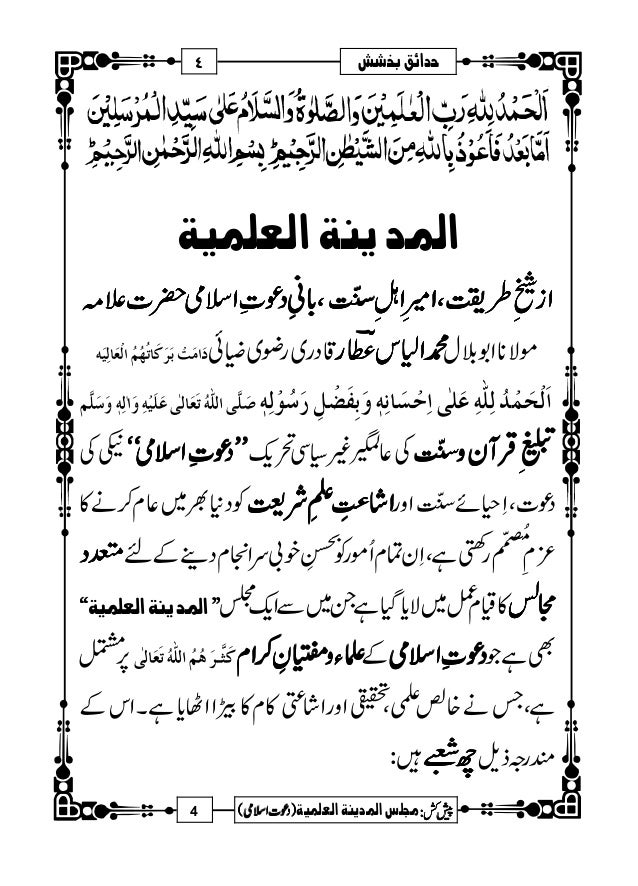 حدائق بخشش
٤
اَلْحَمْدُ لِلّٰهِ رَبِّ الْعٰلَمِيْنَ وَالصَّلٰوةُ وَالسَّلَامُ عَلٰی سَيِّدِ الْمُرْسَلِيْنَ
اَمَّا بَعْدُ فَاَعُوْذُ بِاللّٰهِ مِنَ الشَّيْطٰنِ الرَّجِيْمِؕ بِسْمِ اللّٰهِ الرَّحْمٰنِ الرَّحِيْمِؕ
المدینة العلمیة
از شیخِ طریقت، امیرِ اہلِ سنّت ، بانیِ دعوتِ اسلامی حضرت علامہ
مولانا ابو بلال محمد الیاس عطّارؔ قادری رضوی ضیائی دَامَتْ بَرَكَاتُهُمُ الْعَالِيَه
اَلْحَمْدُ لِلّٰهِ عَلٰی اِحْسَانِهٖ وَ بِفَضْلِ رَسُوْلِهٖ صَلَّی اللّٰهُ تَعَالٰی عَلَيْهِ وَاٰلِهٖ وَسَلَّم
تبلیغِ قرآن و سنّت کی عالمگیر غیر سیاسی تحریک ”دعوتِ اسلامی“ نیکی کی
دعوت، اِحیائے سنّت اور اشاعتِ علمِ شریعت کو دنیا بھر میں عام کرنے کا
عزمِ مُصمّم رکھتی ہے، اِن تمام اُمور کو بحسنِ خوبی سر انجام دینے کے لئے متعدد
مجالس کا قیام عمل میں لایا گیا ہے جن میں سے ایک مجلس ”المدینة العلمیة“
بھی ہے جو دعوتِ اسلامی کے علماء و مفتیانِ کرام كَثَّرَ هُمُ اللّٰهُ تَعَالٰی پر مشتمل
ہے، جس نے خالص علمی، تحقیقی اور اشاعتی کام کا بیڑا اٹھایا ہے۔ اس کے
مندرجہ ذیل چھ شعبے ہیں:
پیش کش: مجلس المدینة العلمیة (دعوتِ اسلامی)
4